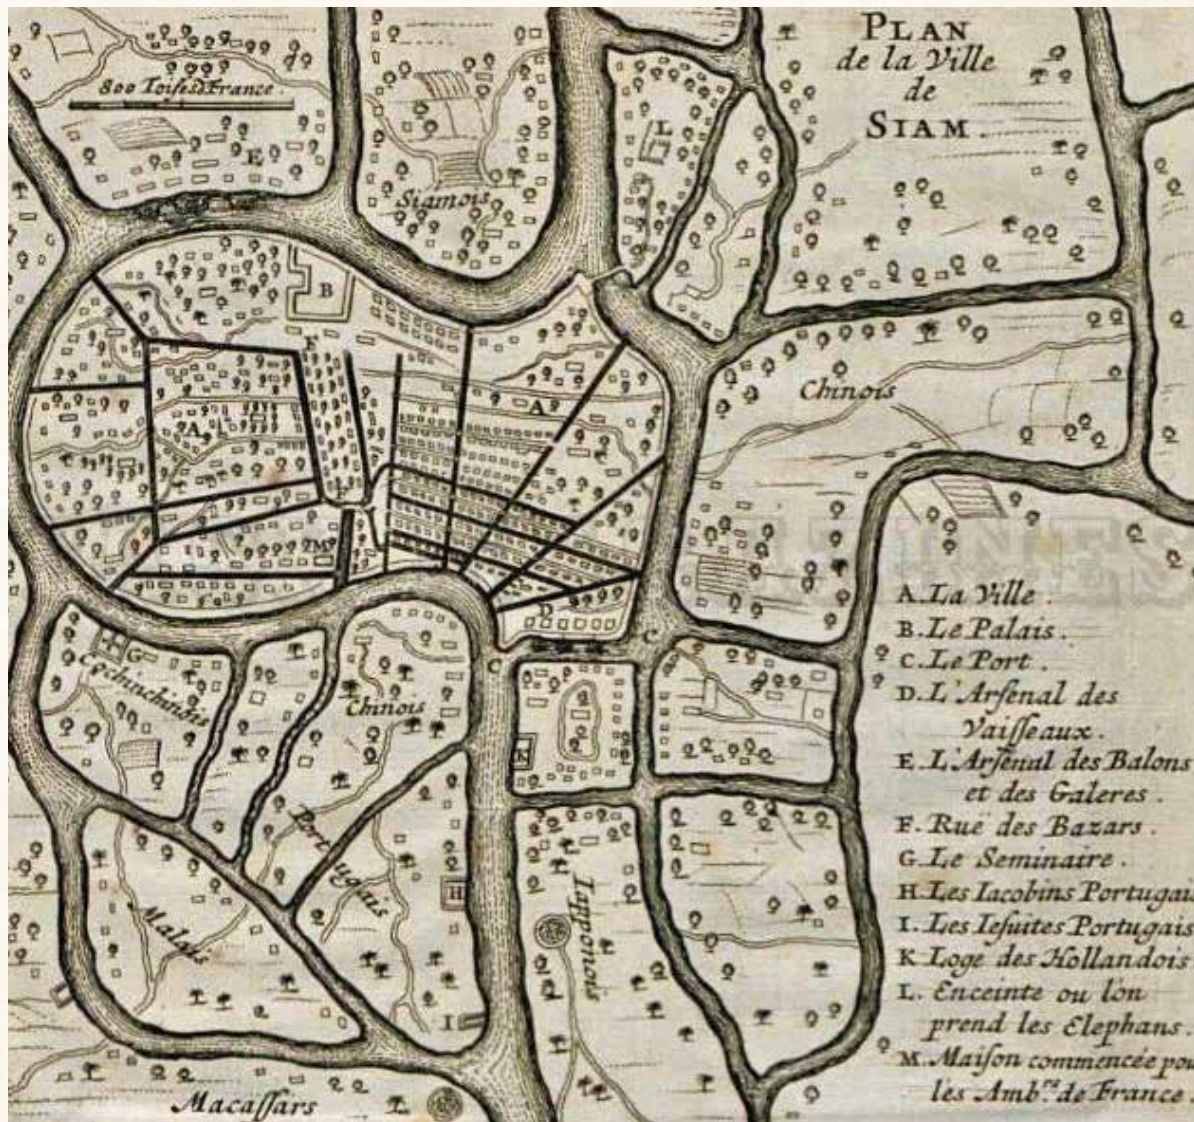 PLAN
de la Ville
de
SIAM.
800 Toises de France.
E
L
Siamois
B
F
A
A
Chinois
M
D
C
C
G
Cochinchinois
Chinois
K
Portugais
H
Malais
Iapponois
I
Macassars
A. La Ville.
B. Le Palais.
C. Le Port.
D. L'Arsenal des
Vaisseaux.
E. L'Arsenal des Balons
et des Galeres.
F. Ruë des Bazars.
G. Le Seminaire.
H. Les Iacobins Portugais
I. Les Iesuites Portugais
K. Loge des Hollandois
L. Enceinte ou lon
prend les Elephans.
M. Maison commencée pou
les Amb.rs de France.